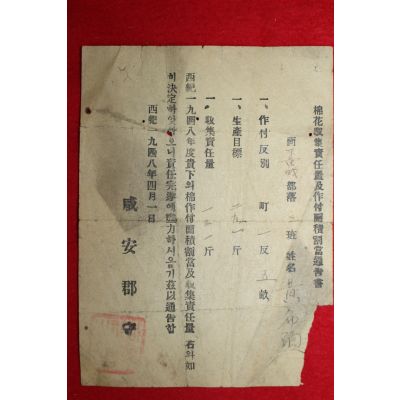 棉花収集責任量及作付面積割當通告書
面 部落 班 姓名
一、作付反別 町 一反 五畝
一、生産目標 斤
一、収集責任量 斤
西紀一九四八年度貴下의棉作付面積割當及収集責任量 右와如
히決定하엿스오니責任完遂에協力하시옵기玆以通告함
西紀一九四八年四月一日
咸安郡守